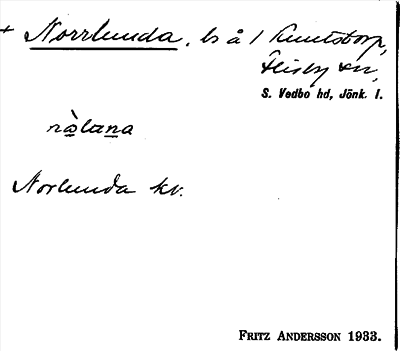 + Norrlunda, ls å 1 Knutstorp,
Flisby sn,
S. Vedbo hd, Jönk. l.
nà̱lana̱
Norlunda kv.
FRITZ ANDERSSON 1933.